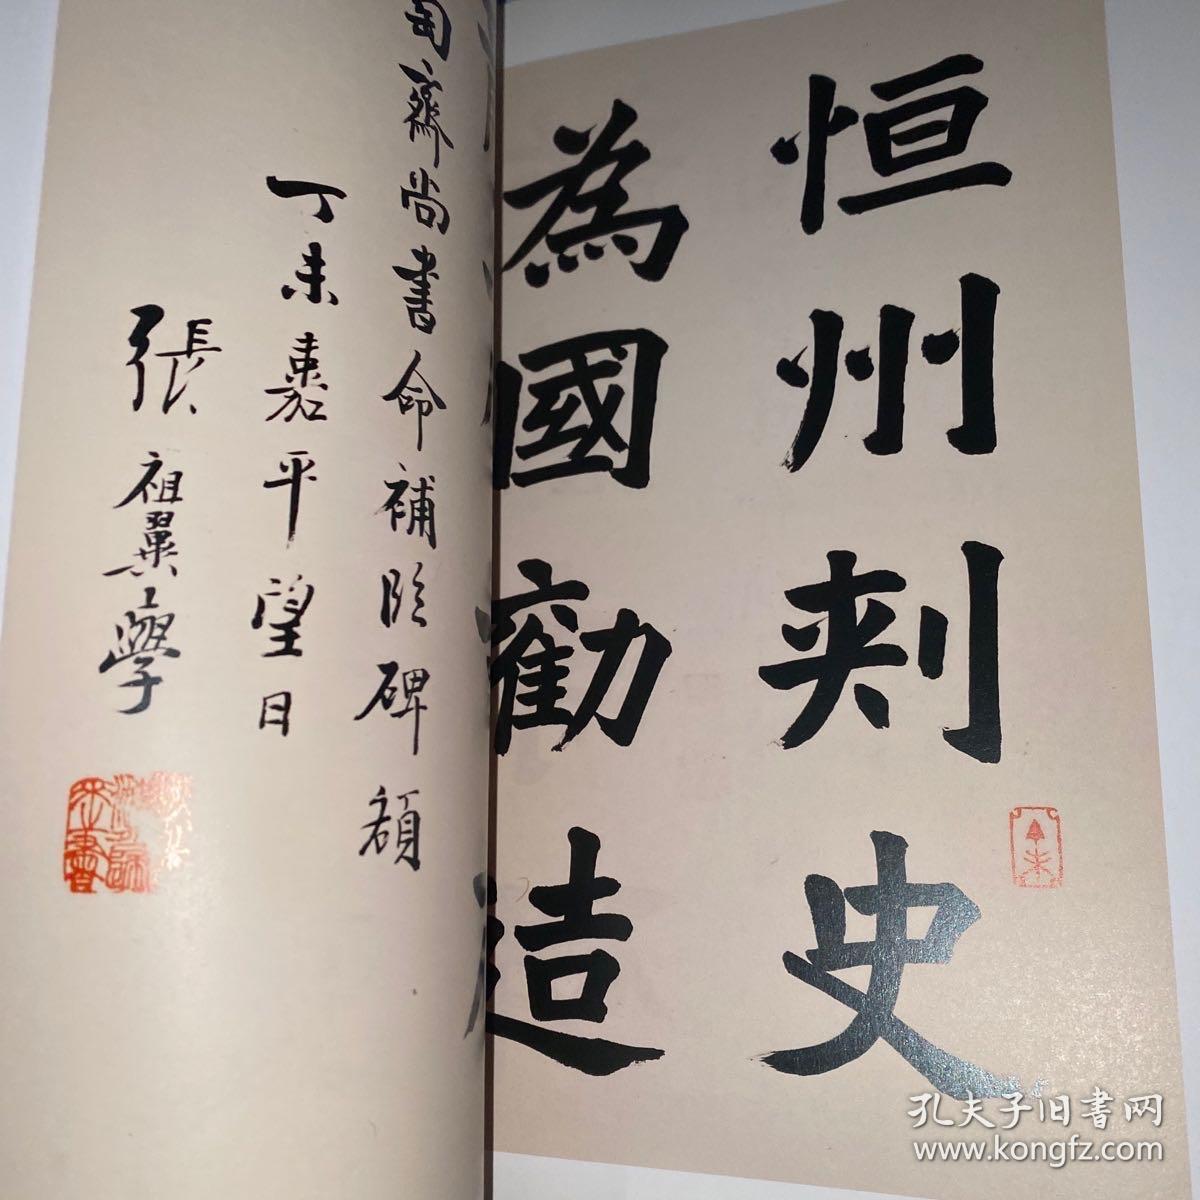 恒州刾史
為國勸造
匋齋尚書命補臨碑額
丁未嘉平望日
張祖翼學
孔夫子旧书网
www.kongfz.com